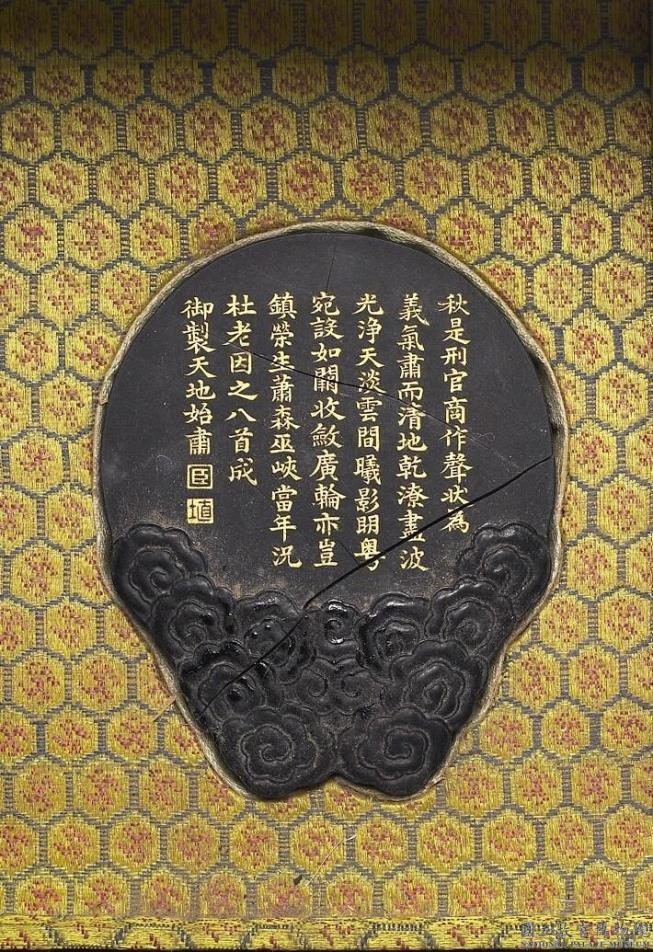 秋是刑官商作聲狀為
義氣肅而清地乾潦盡波
光淨天淡雲間曦影明粵
宛設如關收斂廣輪亦豈
鎮榮生蕭森巫峽當年況
杜老因之八首成
御製天地始肅
臣
埴